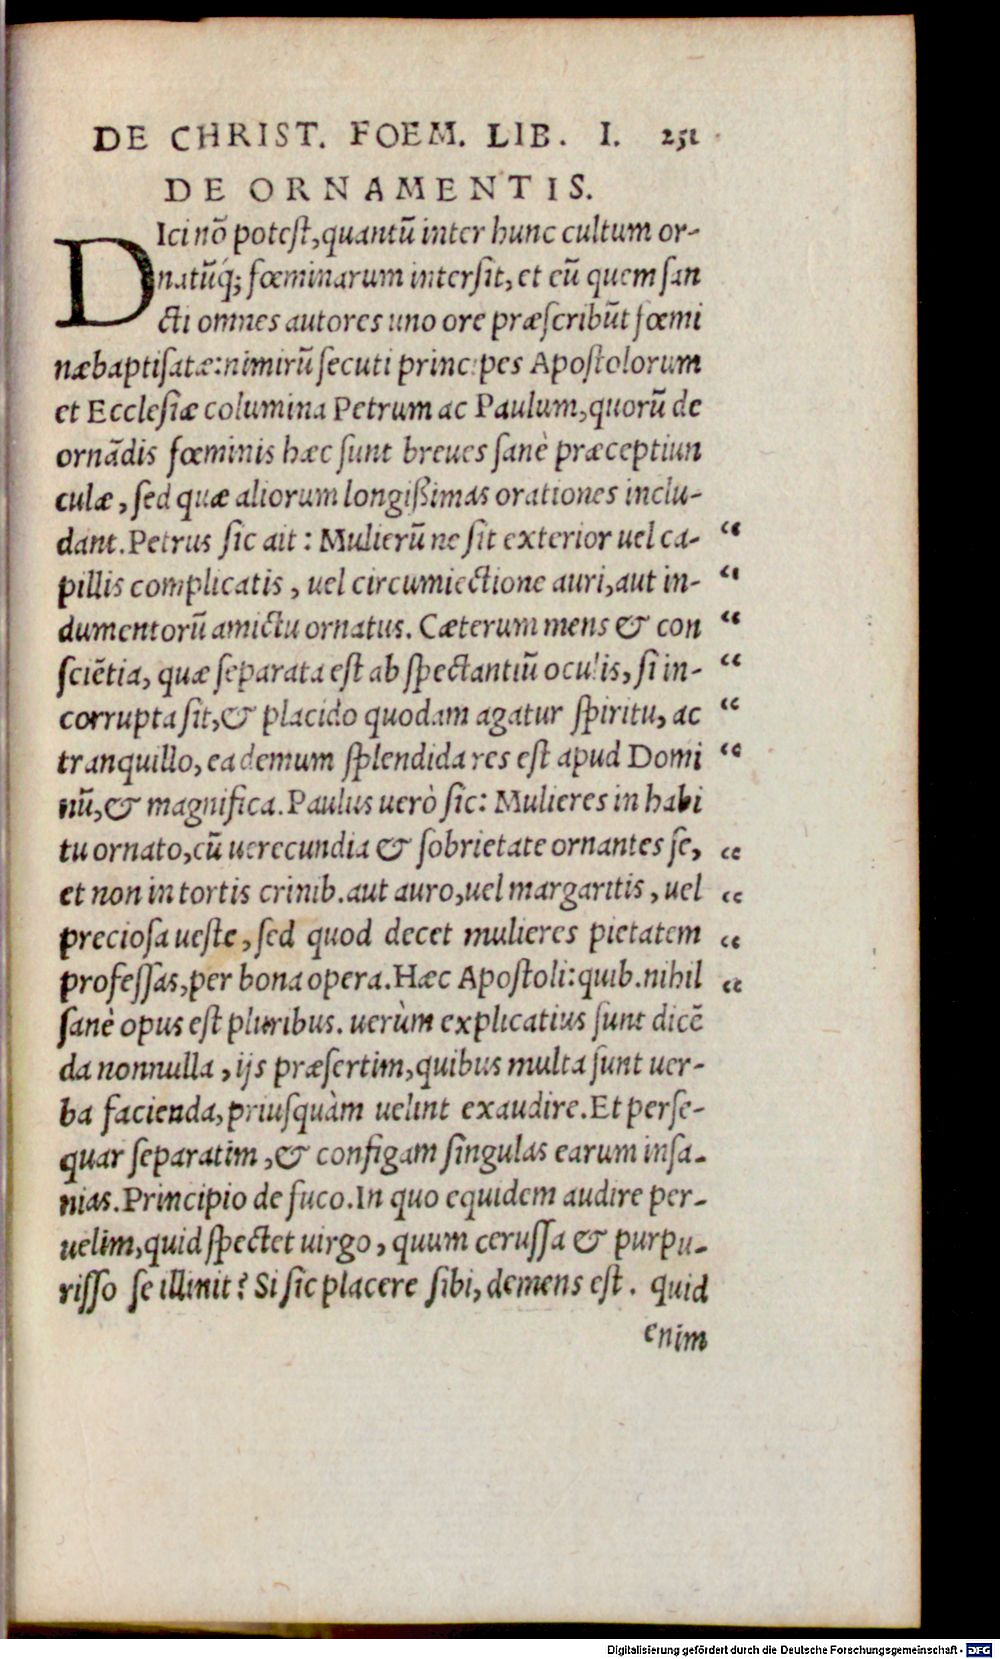 DE CHRIST. FOEM. LIB. I. 251
DE ORNAMENTIS.
DIci nõ potest, quantũ inter hunc cultum or-
natũq́; fœminarum intersit, et eũ quem san
cti omnes autores uno ore præscribũt fœmi
næ baptisatæ: nimirũ secuti principes Apostolorum
et Ecclesiæ columina Petrum ac Paulum, quorũ de
ornãdis fœminis hæc sunt breues sanè præceptiun
culæ, sed quæ aliorum longißimas orationes inclu-
dant. Petrus sic ait: Mulierũ ne sit exterior uel ca- “
pillis complicatis, uel circumiectione auri, aut in- “
dumentorũ amictu ornatus. Cæterum mens & con “
sciẽtia, quæ separata est ab spectantiũ oculis, si in- “
corrupta sit, & placido quodam agatur spiritu, ac “
tranquillo, ea demum splendida res est apud Domi “
nũ, & magnifica. Paulus uerò sic: Mulieres in habi
tu ornato, cũ uerecundia & sobrietate ornantes se, “
et non in tortis crinib. aut auro, uel margaritis, uel “
preciosa ueste, sed quod decet mulieres pietatem “
professas, per bona opera. Hæc Apostoli: quib. nihil “
sanè opus est pluribus. uerùm explicatius sunt dicẽ
da nonnulla, ijs præsertim, quibus multa sunt uer-
ba facienda, priusquàm uelint exaudire. Et perse-
quar separatim, & configam singulas earum insa-
nias. Principio de fuco. In quo equidem audire per-
uelim, quid spectet uirgo, quum cerussa & purpu-
risso se illinit? Si sic placere sibi, demens est. quid
enim
Digitalisierung gefördert durch die Deutsche Forschungsgemeinschaft - DFG